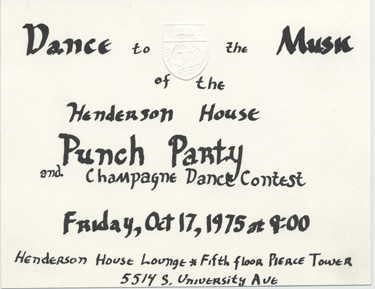 Dance to the Music
of the
Henderson House
Punch Party
and Champagne Dance Contest
Friday, Oct 17, 1975 at 9:00
Henderson House Lounge * Fifth floor Pierce Tower
5514 S. University Ave